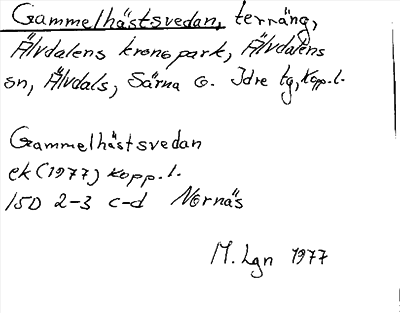 Gammelhästsvedan, terräng,
Älvdalens kronopark, Älvdalens
sn, Älvdals, Särna o. Idre tg, Kopp. l.
Gammelhästsvedan
ek (1977) Kopp. l.
15D 2-3 c-d Nornäs
M. Lgn 1977